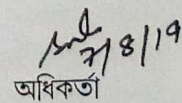 7/8/19
অধিকর্তা